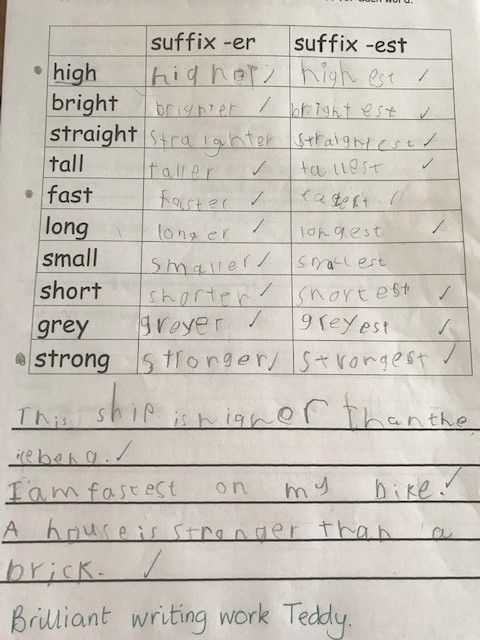 for each word.
suffix -er suffix -est
high higher highest
bright brighter brightest
straight straighter straightest
tall taller tallest
fast faster fastest
long longer longest
small smaller smallest
short shorter shortest
grey greyer greyest
strong stronger strongest
This ship is higher than the
iceberg.
I am fastest on my bike.
A house is stronger than a
brick.
Brilliant writing work Teddy.